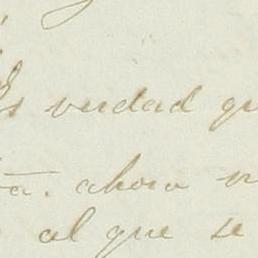 Es verdad qu
ahora
al que se